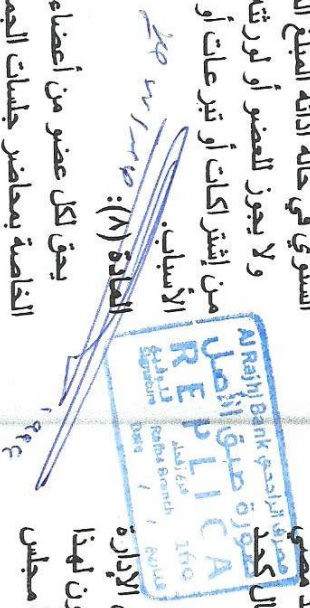 السنوي في حالة أدائه المبلغ
ولا يجوز للعضو أو لورثته
من إشتراكات أو تبرعات أو
الأسباب.
المادة (٨):
يحق لكل عضو من أعضاء
الخاصة بمحاضر جلسات الجم
Al Rajhi Bank مصرف الراجحي
صورة طبق الأصل
REPLICA
160
Rafha Branch
Date / / التاريخ
مضي
ال كحد
الإدارة
ون لهذا
مجلس